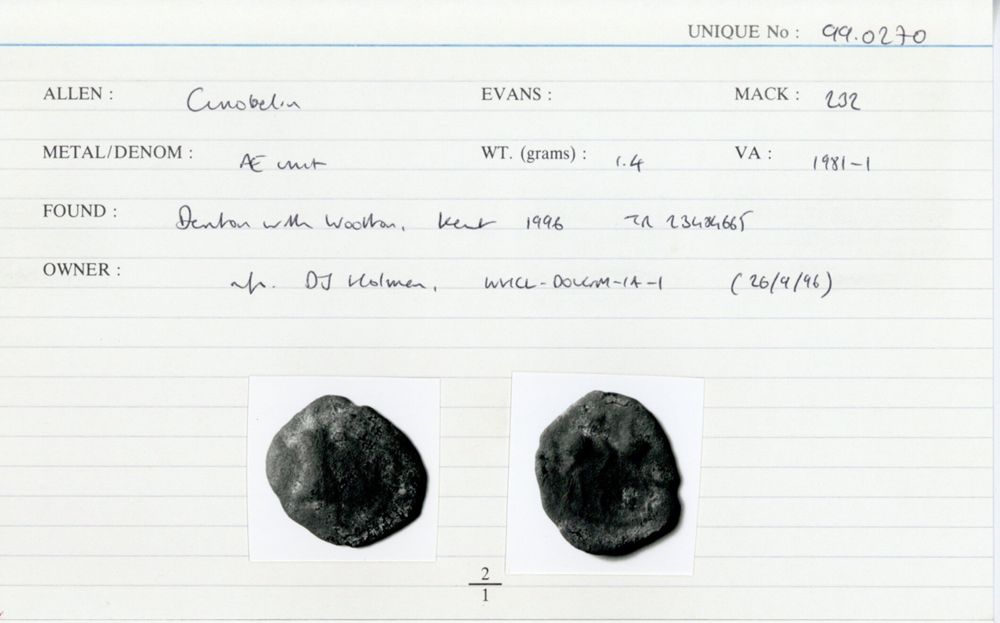 UNIQUE No : 99.0270
ALLEN : Cunobelin EVANS : MACK : 232
METAL/DENOM : Æ unit WT. (grams) : 1.4 VA : 1981-1
FOUND : Denton with Wootton, Kent 1996 TR 23484665
OWNER : DJ Holman, (26/9/96)
2
1